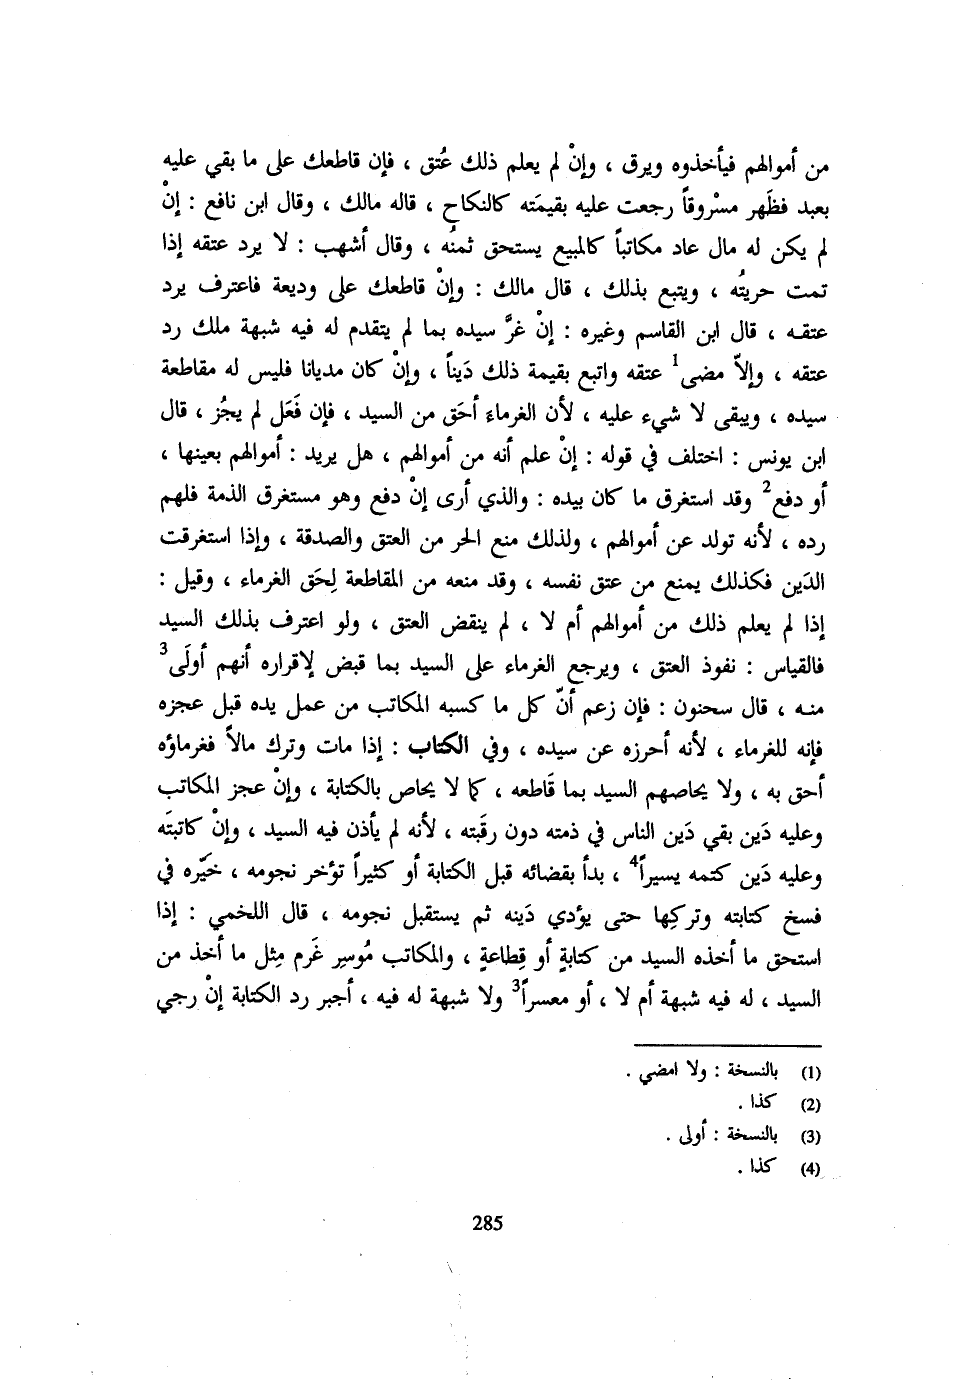 من أموالهم فيأخذوه ويرق ، وإنْ لم يعلم ذلك عُتق ، فإن قاطعك على ما بقي عليه
بعبد فظَهر مسْروقاً رجعت عليه بقيمَته كالنكاح ، قاله مالك ، وقال ابن نافع : إنْ
لم يكن له مال عاد مكاتباً كالمبيع يستحق ثمنُه ، وقال أشهب : لا يرد عتقه إذا
تمت حريتُه ، ويتبع بذلك ، قال مالك : وإنْ قاطعك على وديعة فاعترف يرد
عتقه ، قال ابن القاسم وغيره : إنْ غرَّ سيده بما لم يتقدم له فيه شبهة ملك رد
عتقه ، وإلاّ مضى1 عتقه واتبع بقيمة ذلك دَيناً ، وإنْ كان مديانا فليس له مقاطعة
سيده ، ويبقى لا شيء عليه ، لأن الغرماء أحَق من السيد ، فإن فَعَل لم يجُز ، قال
ابن يونس : اختلف في قوله : إنْ علم أنه من أموالهم ، هل يريد : أموالهم بعينها ،
أو دفع2 وقد استغرق ما كان بيده : والذي أرى إنْ دفع وهو مستغرق الذمة فلهم
رده ، لأنه تولد عن أموالهم ، ولذلك منع الحر من العتق والصدقة ، وإذا استغرقت
الدَين فكذلك يمنع من عتق نفسه ، وقد منعه من المقاطعة لِحَق الغرماء ، وقيل :
إذا لم يعلم ذلك من أموالهم أم لا ، لم ينقض العتق ، ولو اعترف بذلك السيد
فالقياس : نفوذ العتق ، ويرجع الغرماء على السيد بما قبض لإقراره أنهم أولَى3
منه ، قال سحنون : فإن زعم أنّ كل ما كسبه المكاتب من عمل يده قبل عجزه
فإنه للغرماء ، لأنه أحرزه عن سيده ، وفي الكتاب : إذا مات وترك مالاً فغرماؤه
أحق به ، ولا يحاصهم السيد بما قَاطعه ، كما لا يحاص بالكتابة ، وإنْ عجز المكاتب
وعليه دَين بقي دَين الناس في ذمته دون رقَبته ، لأنه لم يأذن فيه السيد ، وإنْ كاتبتَه
وعليه دَين كتمه يسيراً4 ، بدأ بقضائه قبل الكتابة أو كثيراً تؤخر نجومه ، خيّره في
فسخ كتابته وتركِها حتى يؤدي دَينه ثم يستقبل نجومه ، قال اللخمي : إذا
استحق ما أخذه السيد من كتابةٍ أو قِطاعةٍ ، والمكاتب مُوسِر غَرم مِثل ما أخذ من
السيد ، له فيه شبهة أم لا ، أو معسراً3 ولا شبهة له فيه ، أجبر رد الكتابة إنْ رجي
(1) بالنسخة : ولا امضي .
(2) كذا .
(3) بالنسخة : أولى .
(4) كذا .
285